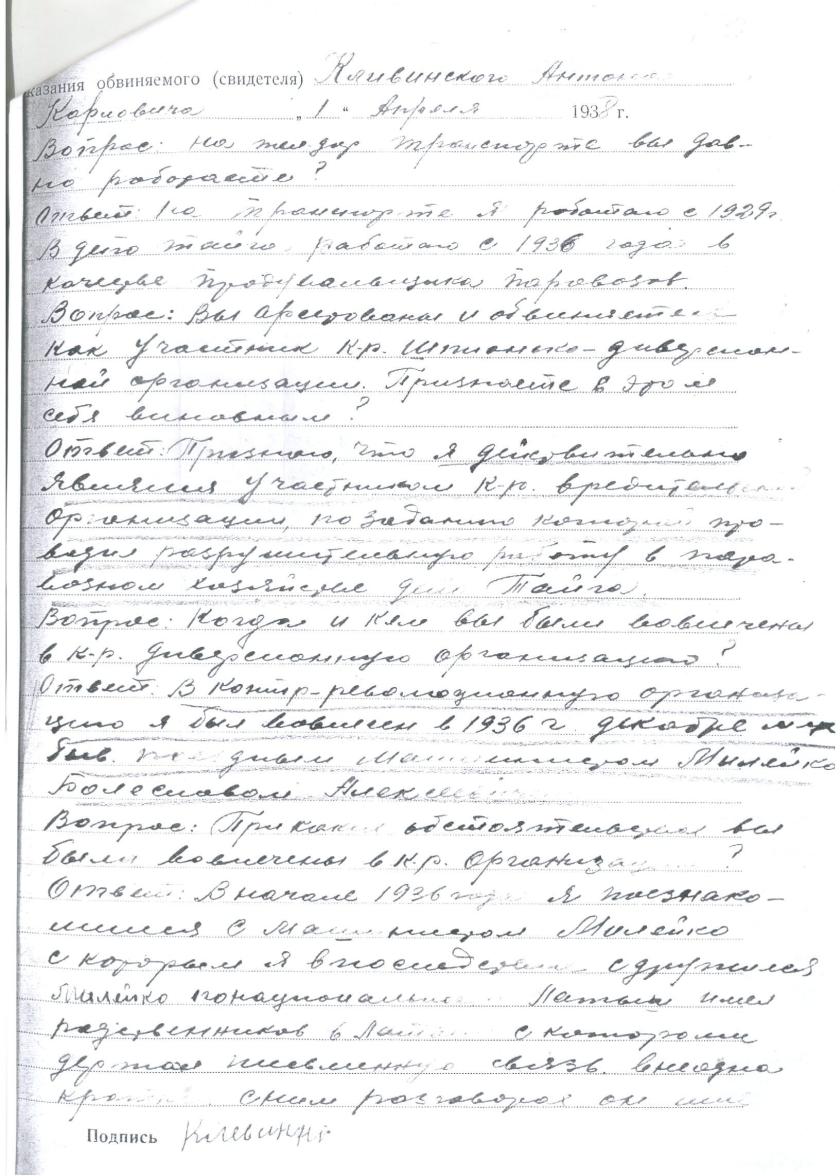 казания обвиняемого (свидетеля) Клявинского Антона
Карловича „ 1 " Апреля 1938 г.
Вопрос: на жел.дор транспорте вы дав-
но работаете?
Ответ: На транспорте я работаю с 1929г.
В депо тайга работаю с 1936 года в
качестве продувальщика паровозов.
Вопрос: Вы арестованы и обвиняетесь
как участник к.р. шпионско-диверсион-
ной организации. Признаете в этом
себя виновным?
Ответ: Признаю, что я действительно
являлся участником к.р. вредительской
организации по заданию которой про-
водил разрушительную работу в паро-
возном хозяйстве депо Тайга.
Вопрос: Когда и кем вы были вовлечены
в к-р. диверсионную организацию?
Ответ: В контр-революционную организа-
цию я был вовлечен в 1936 г декабре м-це
быв. машинистом Милейко
Болеславом Алексеевичем
Вопрос: При каких обстоятельствах вы
были вовлечены в к.р. организацию?
Ответ: В начале 1936 года я познако-
мился с машинистом Милейко
с которым я впоследствии сдружился
Милейко по национальности Латыш имел
родственников в Латвии с которыми
держал письменную связь. в неодно
кратных с ним разговорах он мне
Подпись Клявинский